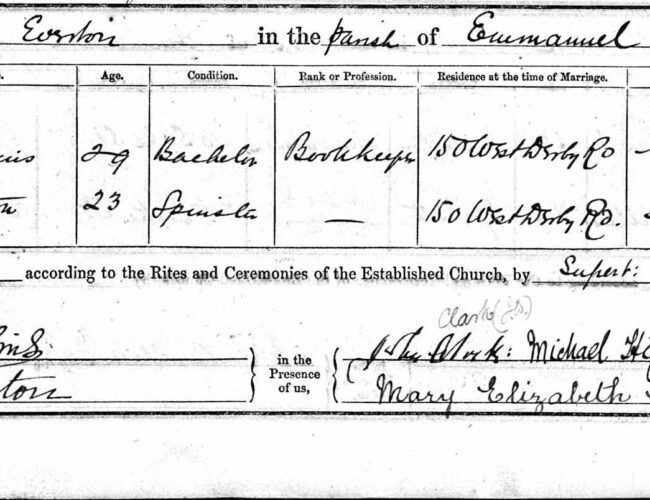 Everton in the Parish of Emmanuel
Age. Condition. Rank or Profession. Residence at the time of Marriage.
29 Bachelor Bookkeeper 150 West Derby Rd
23 Spinster — 150 West Derby Rd.
according to the Rites and Ceremonies of the Established Church, by Supert:
Clarke
in the
Presence
of us,
Michael
ton Mary Elizabeth